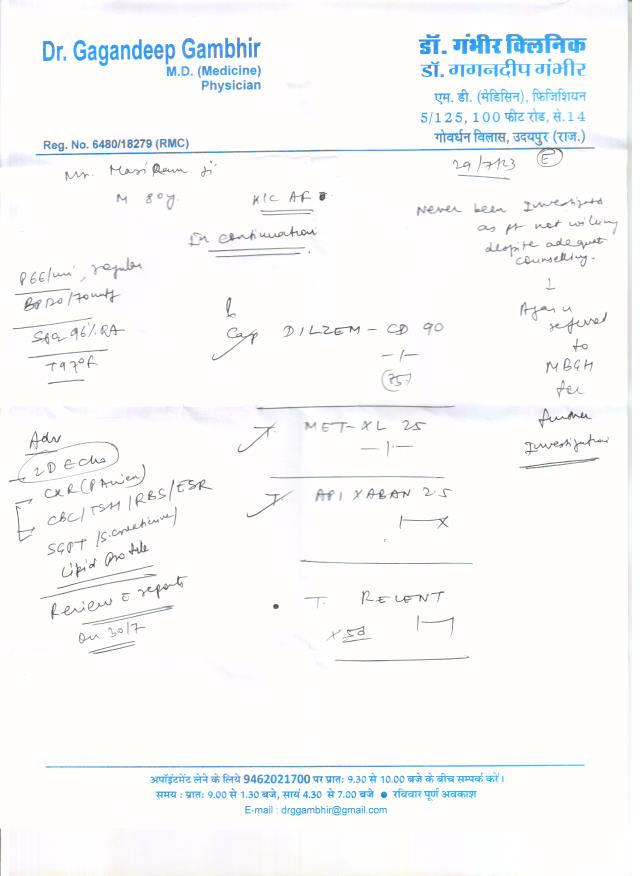 Dr. Gagandeep Gambhir
M.D. (Medicine)
Physician
Reg. No. 6480/18279 (RMC)
डॉ. गंभीर क्लिनिक
डॉ. गगनदीप गंभीर
एम. डी. (मेडिसिन), फिजिशियन
5/125, 100 फीट रोड, से.14
गोवर्धन विलास, उदयपुर (राज.)
Mr. Ram Ji
29/7/23 E
M 80y.
K/C AF
In continuation
Never been Investigated
as pt not willing
despite adequate
counselling.
↓
Again
referred
to
MBGH
for
further
Investigation
P 66/min, regular
BP 120/70 mmHg
SpO2 96% RA
T 97°F
Cap DILZEM - CD 90
-/-
T. MET-XL 25
-/-
T. APIXABAN 2.5
T. RELENT
x 5d
Adv
2D Echo
CXR (PA view)
CBC/TSH/RBS/ESR
SGPT/S.creatinine/
Lipid Profile
Review c reports
on 30/7
अपॉइंटमेंट लेने के लिये 9462021700 पर प्रात: 9.30 से 10.00 बजे के बीच सम्पर्क करें।
समय : प्रात: 9.00 से 1.30 बजे, सायं 4.30 से 7.00 बजे ● रविवार पूर्ण अवकाश
E-mail : drggambhir@gmail.com